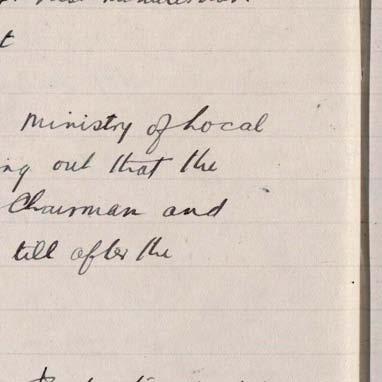 t
Ministry of Local
ing out that the
Chairman and
till after the